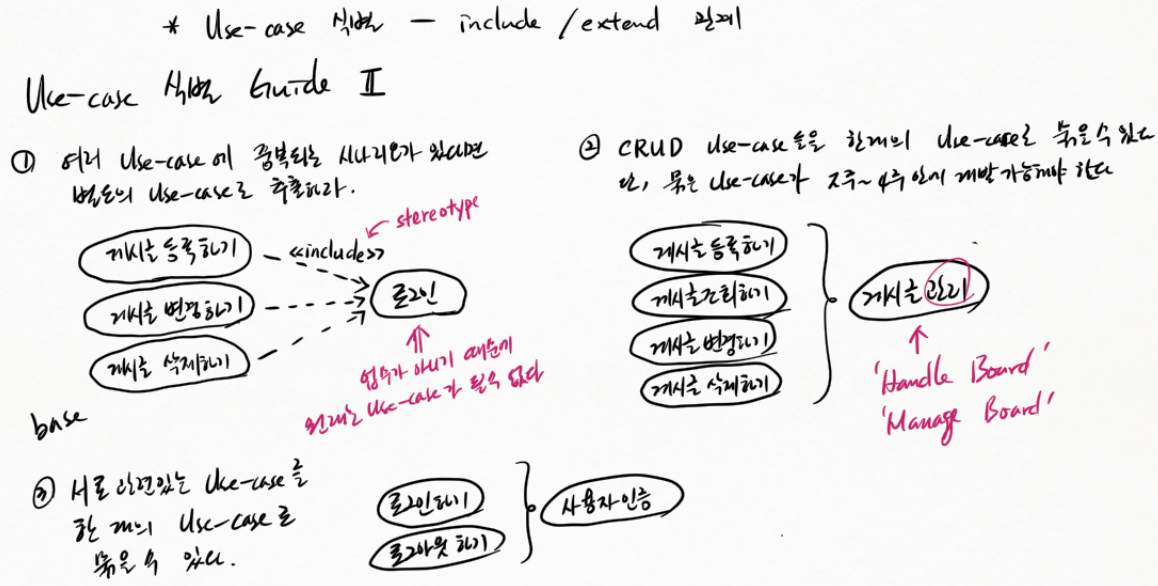 * Use-case 식별 — include / extend 관계
Use-case 식별 Guide Ⅱ
① 여러 Use-case에 중복되는 시나리오가 있다면
별도의 Use-case로 추출하라.
stereotype
게시글 등록하기
<<include>>
게시글 변경하기
로그인
게시글 삭제하기
업무가 아니기 때문에
원래는 Use-case가 될 수 없다
base
② CRUD Use-case들을 한개의 Use-case로 묶을 수 있다
단, 묶은 Use-case가 2주~4주 안에 개발 가능해야 한다
게시글 등록하기
게시글 조회하기
게시글 변경하기
게시글 삭제하기
게시글 관리
'Handle Board'
'Manage Board'
③ 서로 관련있는 Use-case를
한 개의 Use-case로
묶을 수 있다.
로그인하기
로그아웃 하기
사용자 인증